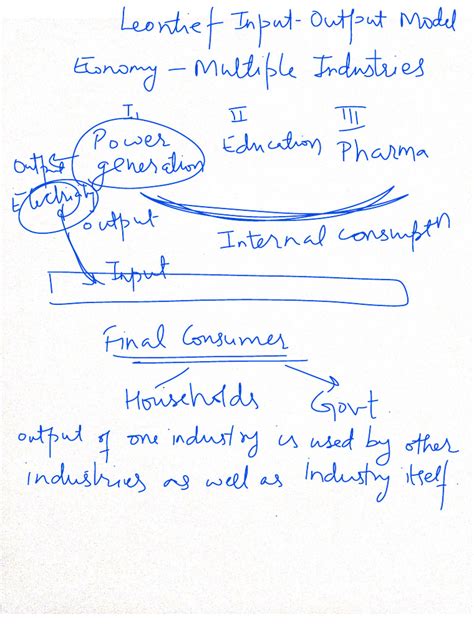 Leontief Input-Output Model
Economy - Multiple Industries
I II III
Power generation Education Pharma
Output
Electricity
output
Internal consumptn
Input
Final Consumer
Households Govt.
output of one industry is used by other
industries as well as Industry itself.